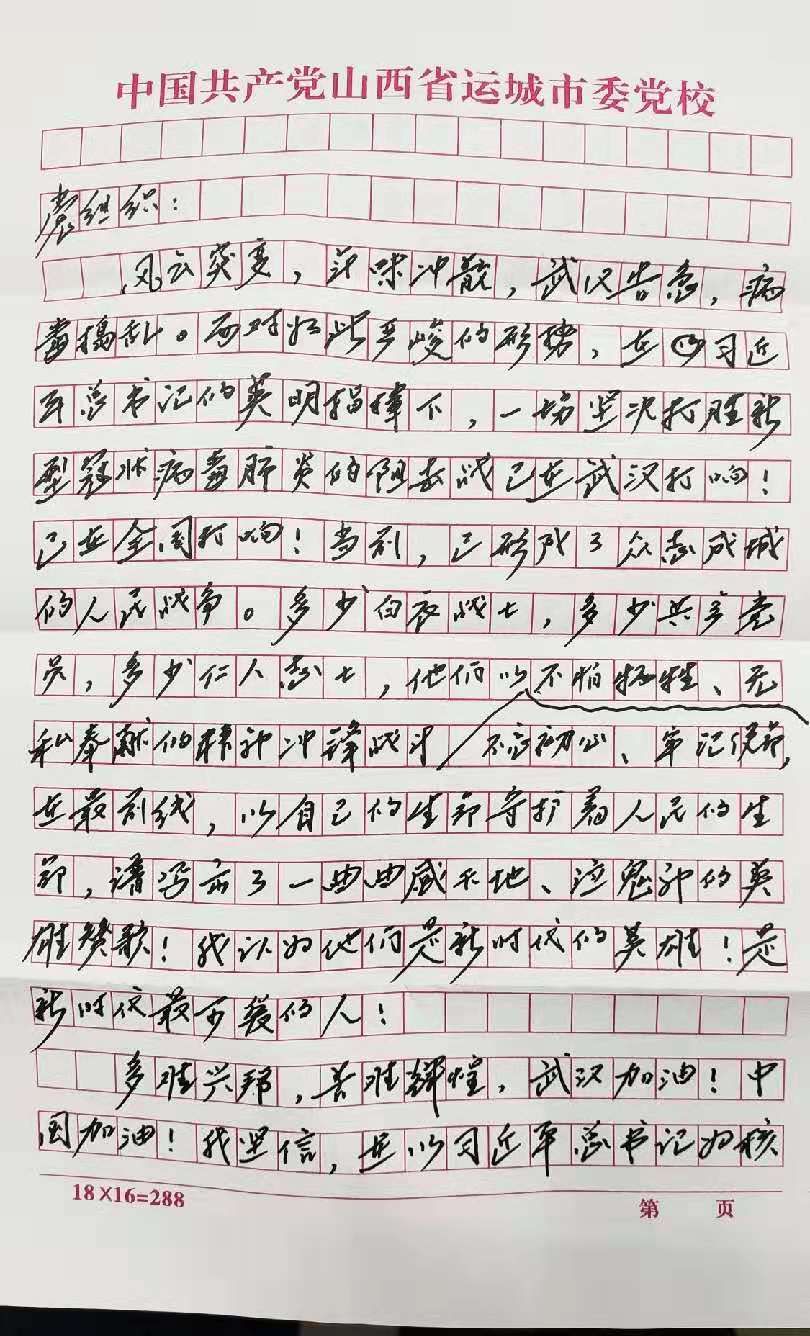 中国共产党山西省运城市委党校
党组织：
风云突变，年味冲散，武汉告急，病
毒捣乱。面对如此严峻的形势，在习近
平总书记的英明指挥下，一场坚决打胜新
型冠状病毒肺炎的阻击战已在武汉打响！
已在全国打响！当前，已形成了众志成城
的人民战争。多少白衣战士，多少共产党
员，多少仁人志士，他们以不怕牺牲、无
私奉献的精神冲锋战斗 不忘初心、牢记使命，
在最前线，以自己的生命守护着人民的生
命，谱写出了一曲曲感天地、泣鬼神的英
雄赞歌！我认为他们是新时代的英雄！是
新时代最可爱的人！
多难兴邦，苦难辉煌，武汉加油！中
国加油！我坚信，在以习近平总书记为核
18×16=288
第 页